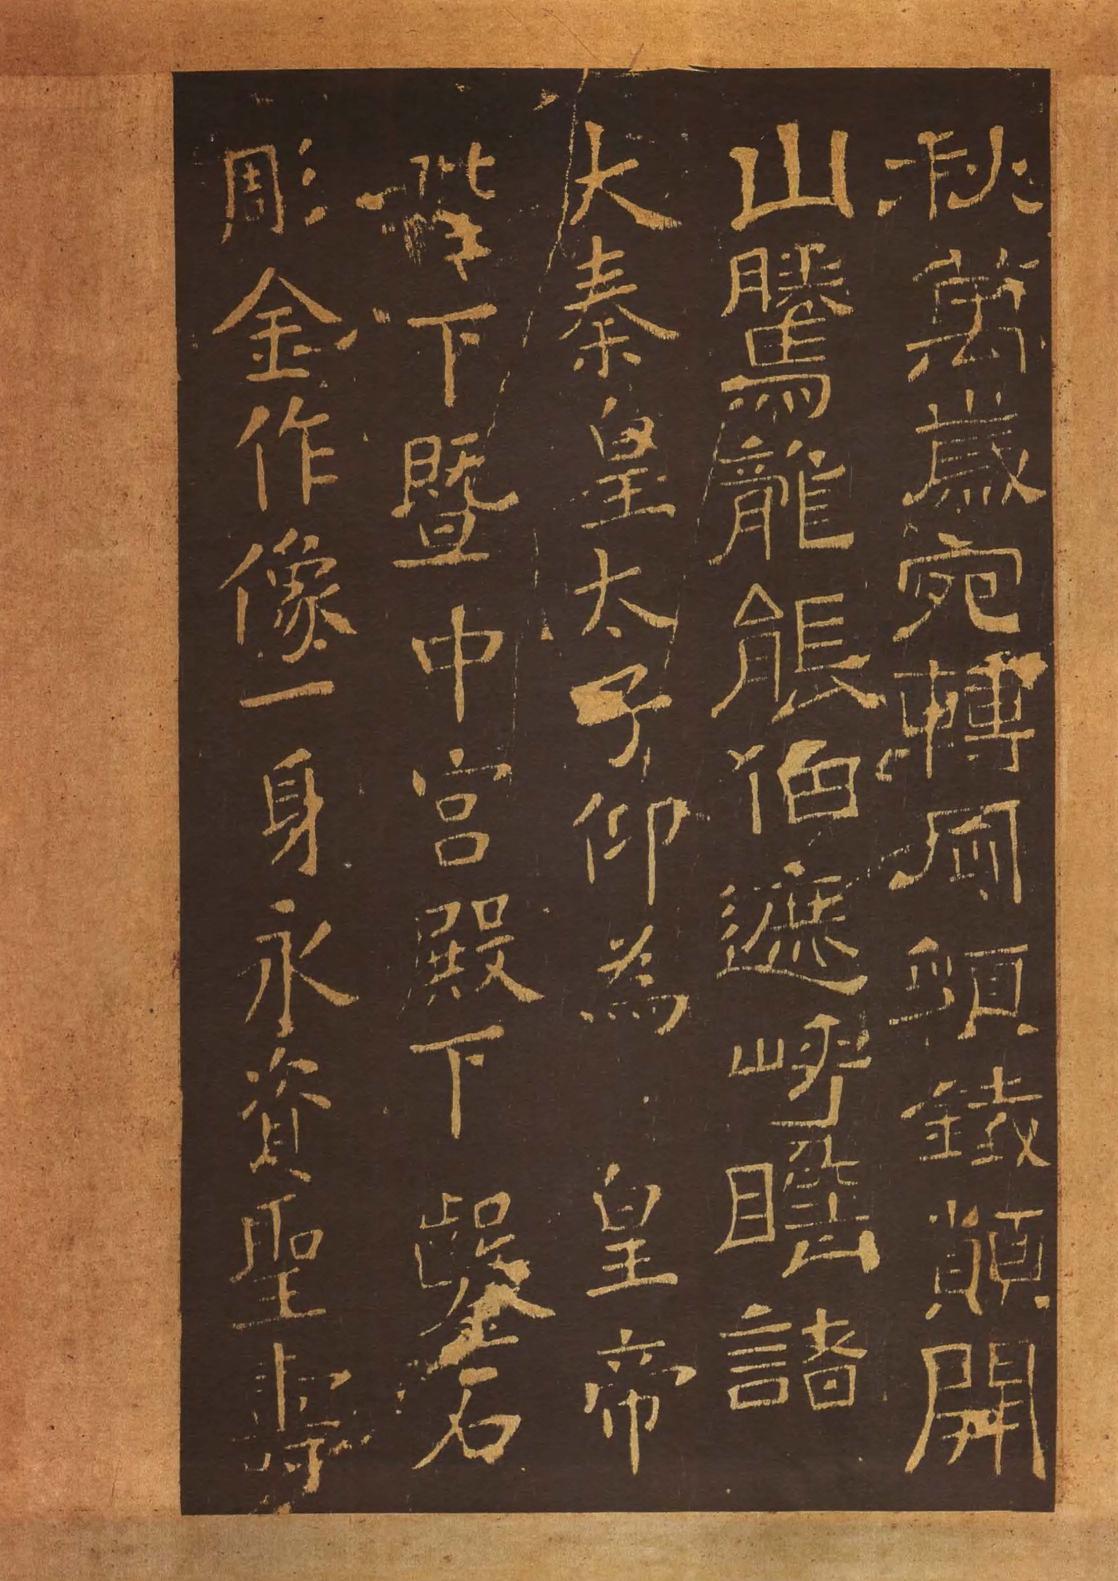 秋萬歲宛轉岡開
山騰龍伯遮諸
大秦皇太子仰為 皇帝
陛下暨中宮殿下 鑿石
彫金作像一身永資聖壽